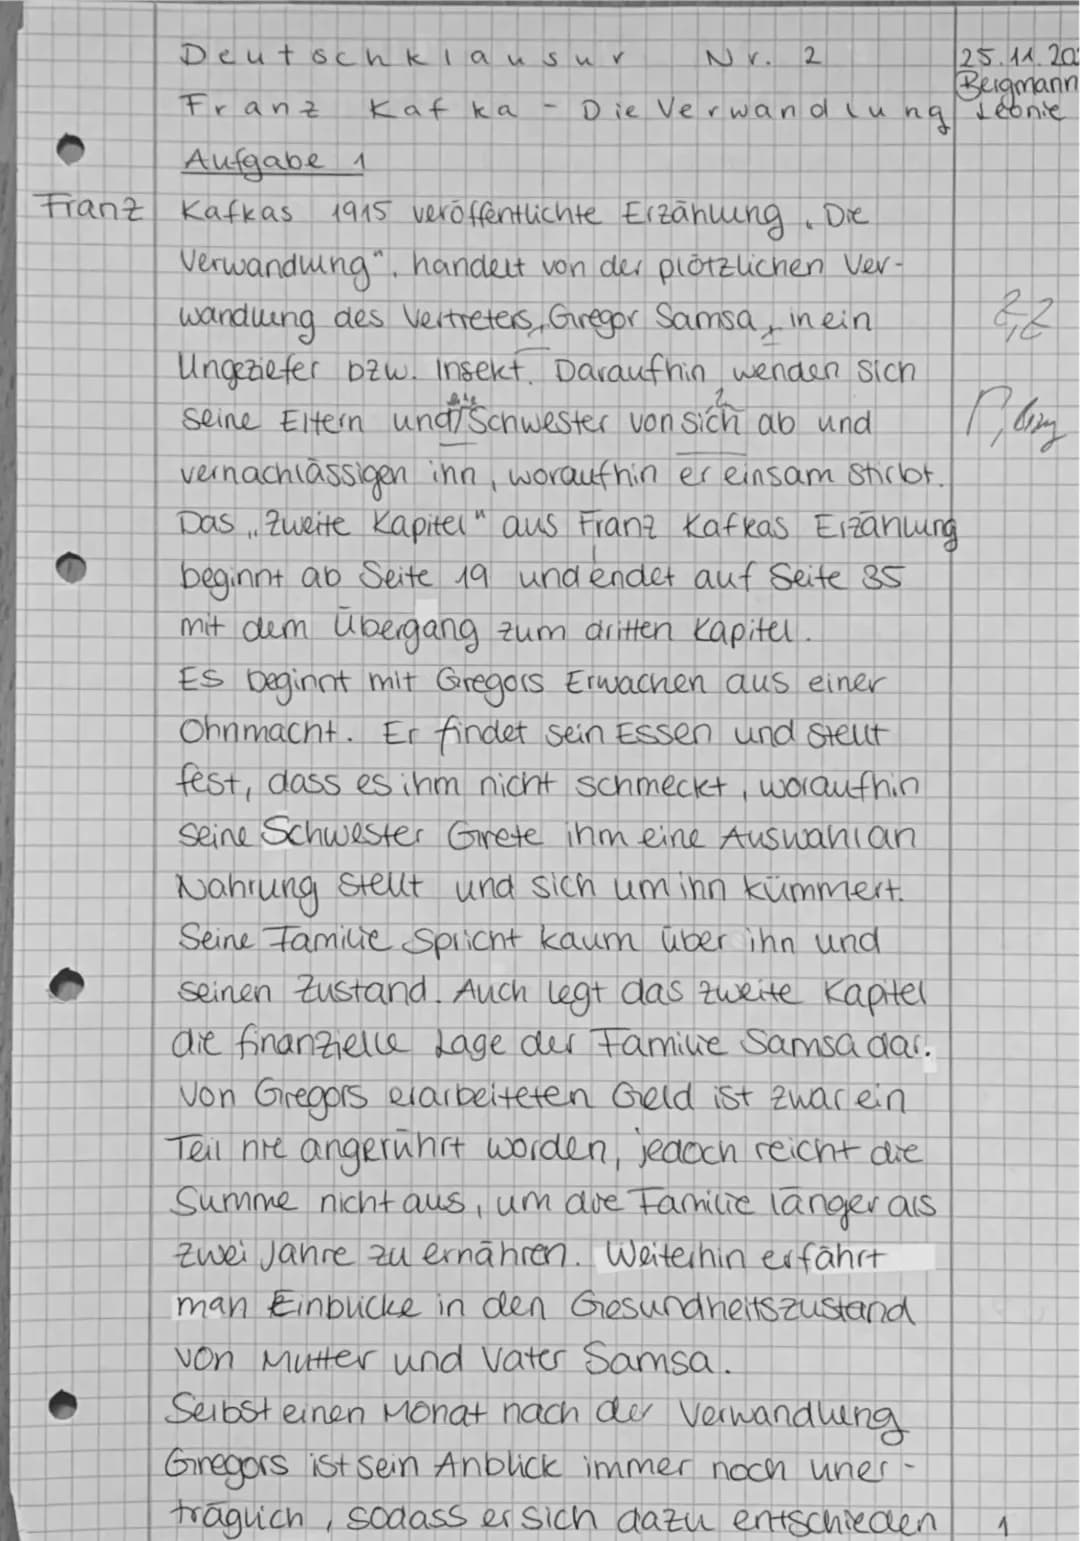 Deutschklausur Nr. 2 25.11.20
Bergmann
Franz Kafka - Die Verwandlung Leonie
Aufgabe 1
Franz Kafkas 1915 veröffentlichte Erzählung „Die
Verwandlung", handelt von der plötzlichen Ver-
wandlung des Vertreters, Gregor Samsa, in ein
Ungeziefer bzw. Insekt. Daraufhin wenden sich
seine Eltern und Schwester von sich ab und
vernachlässigen ihn, woraufhin er einsam stirbt.
Das „Zweite Kapitel" aus Franz Kafkas Erzählung
beginnt ab Seite 19 und endet auf Seite 35
mit dem Übergang zum dritten Kapitel.
Es beginnt mit Gregors Erwachen aus einer
Ohnmacht. Er findet sein Essen und stellt
fest, dass es ihm nicht schmeckt, woraufhin
seine Schwester Grete ihm eine Auswahl an
Nahrung stellt und sich um ihn kümmert.
Seine Familie spricht kaum über ihn und
seinen Zustand. Auch legt das zweite Kapitel
die finanzielle Lage der Familie Samsa dar.
Von Gregors erarbeiteten Geld ist zwar ein
Teil nie angerührt worden, jedoch reicht die
Summe nicht aus, um die Familie länger als
zwei Jahre zu ernähren. Weiterhin erfährt
man Einblicke in den Gesundheitszustand
von Mutter und Vater Samsa.
Selbst einen Monat nach der Verwandlung
Gregors ist sein Anblick immer noch uner-
träglich, sodass er sich dazu entschieden 1